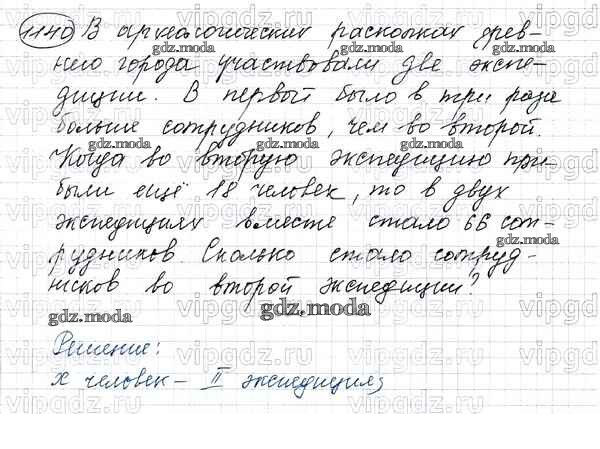 1140 В археологических раскопках древ-
него города участвовали две экспе-
диции. В первый было в три раза
больше сотрудников, чем во второй.
Когда во вторую экспедицию при
были ещё 18 человек, то в двух
экспедициях вместе стало 66 сот-
рудников. Сколько стало сотруд-
ников во второй экспедиции?
gdz.moda
Решение:
x человек – II экспедиция;